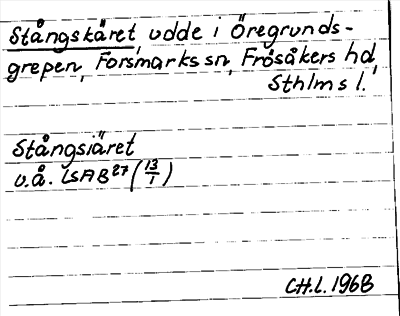 Stångskäret, udde i Öregrunds-
grepen, Forsmarks sn, Frösåkers hd,
Sthlms l.
Stångsiäret
u.å. LSA B27 (13/1)
CH.L. 1968